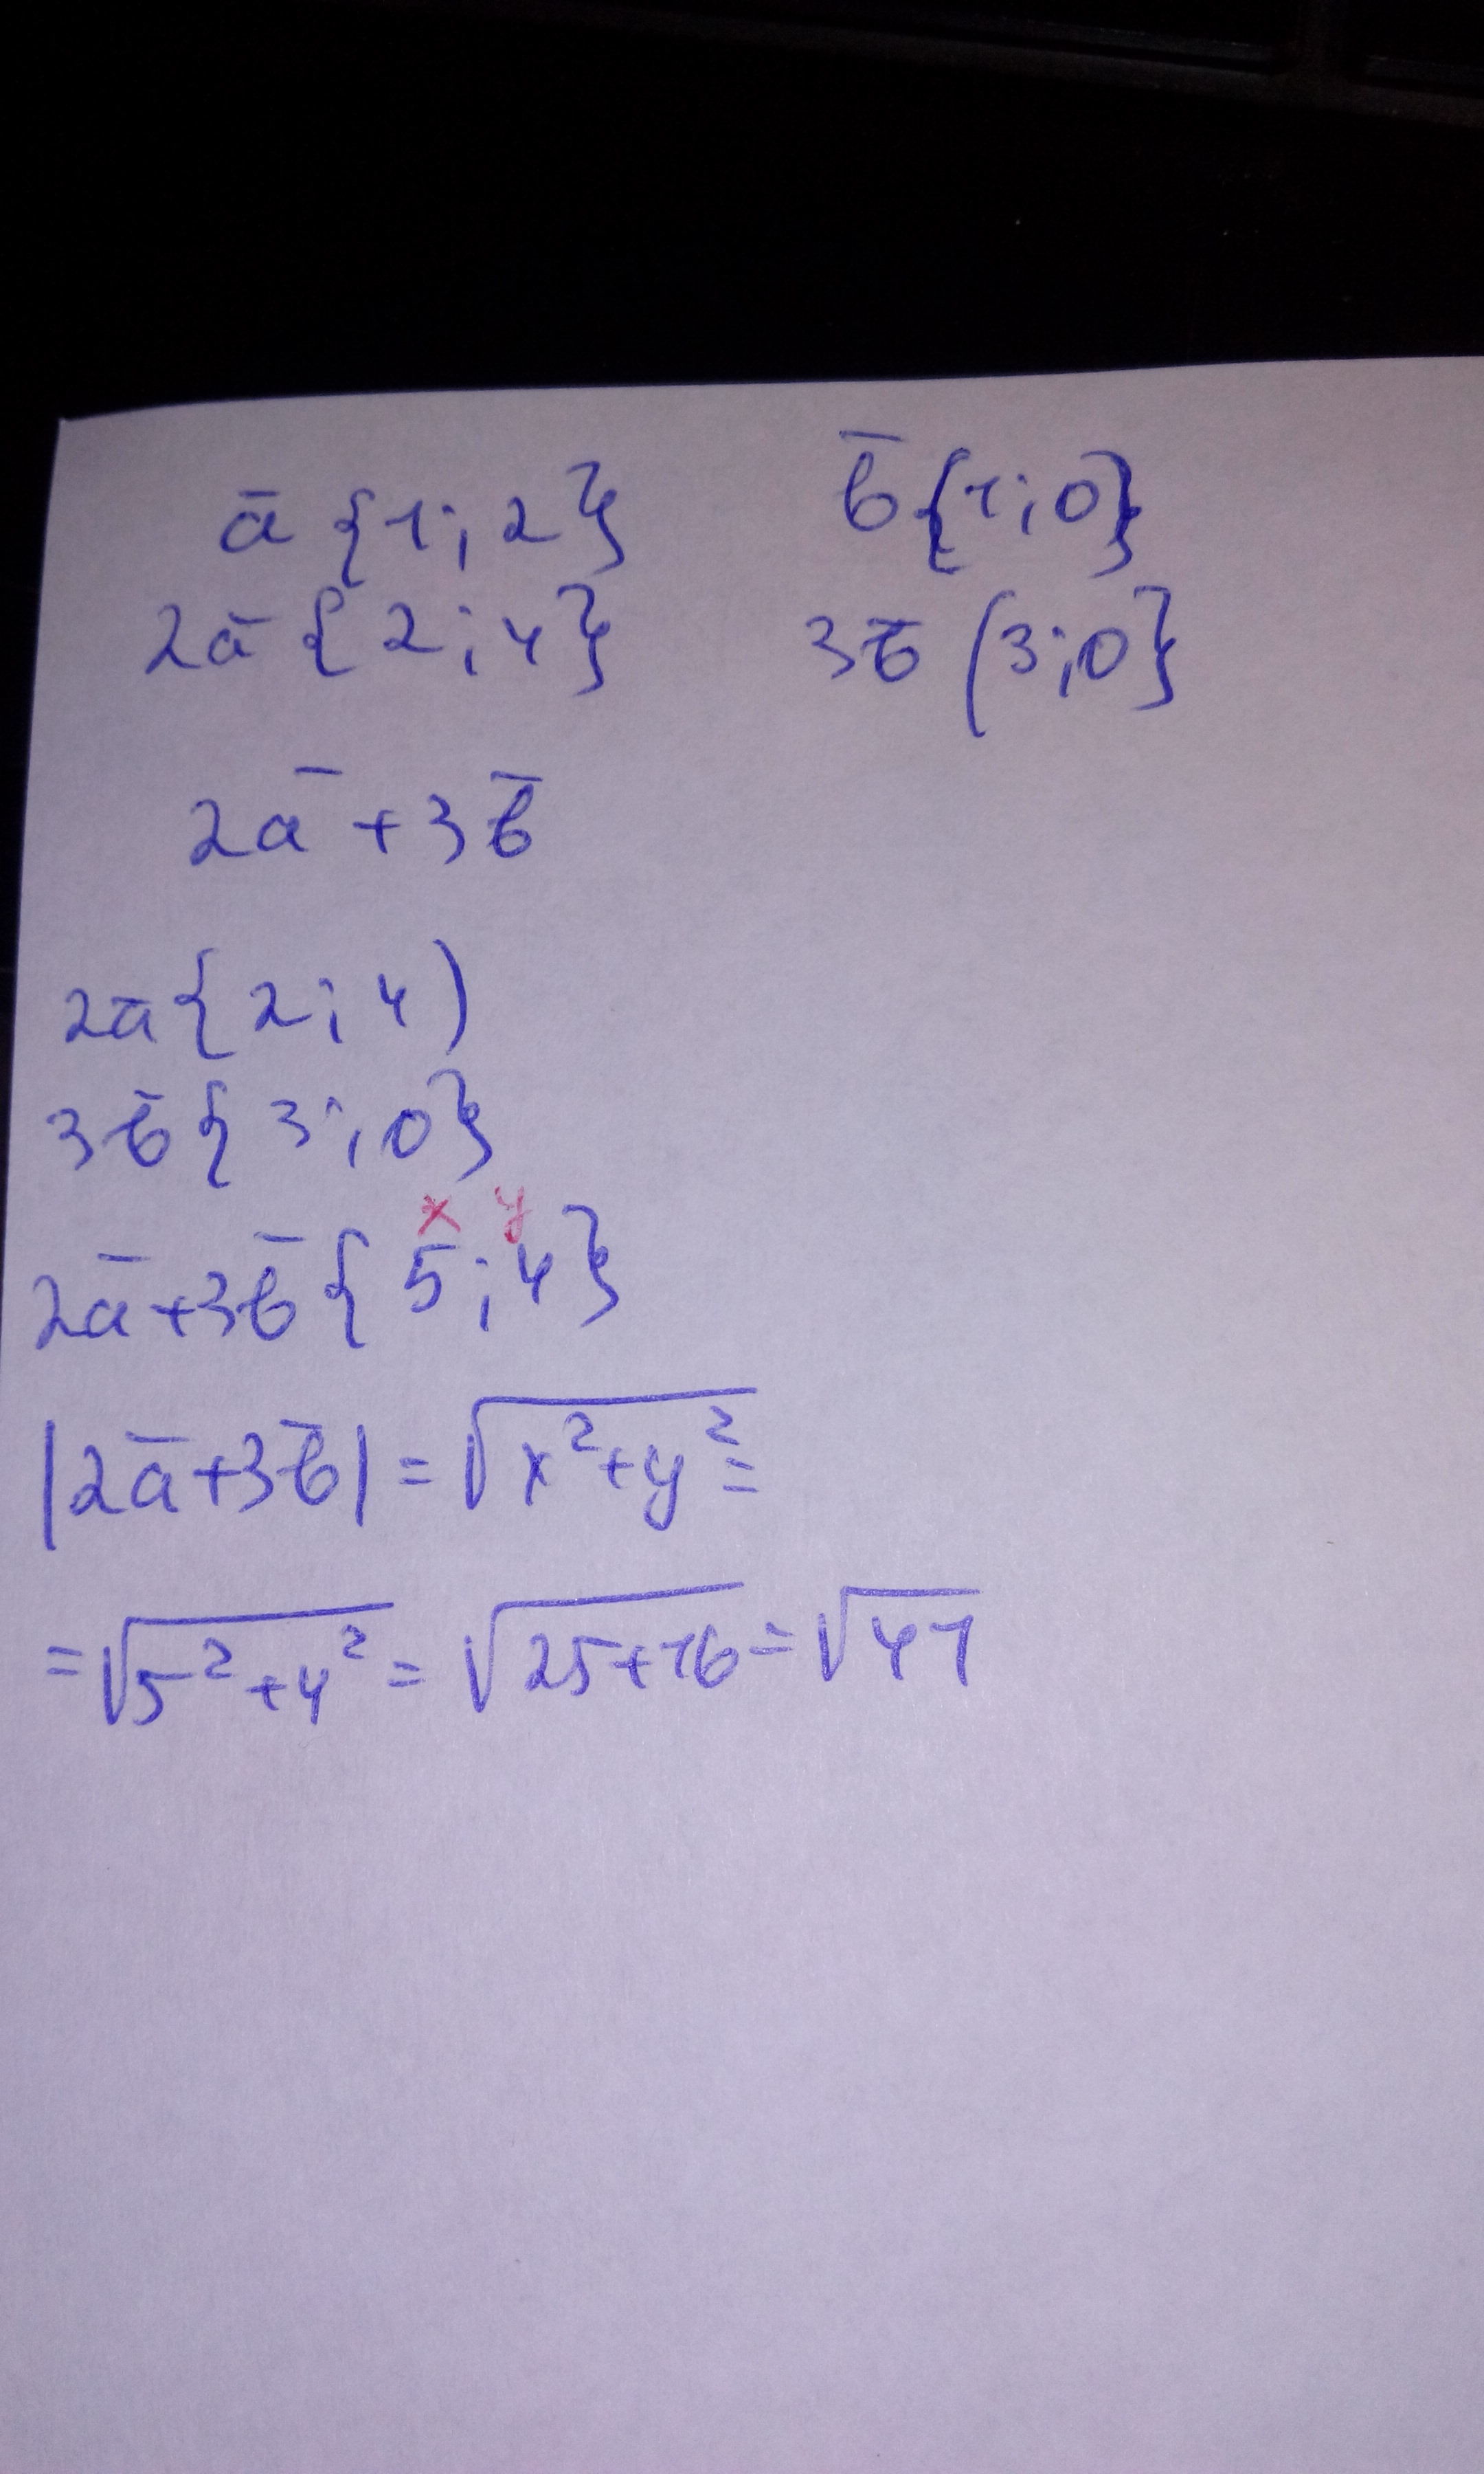 ā {1; 2}    b̄ {1; 0}
2ā {2; 4}    3b̄ (3; 0}
2ā + 3b̄
2ā {2; 4)
3b̄ {3; 0}
x y
2ā + 3b̄ {5; 4}
|2ā + 3b̄| = √(x² + y²) =
= √(5² + 4²) = √(25 + 16) = √41